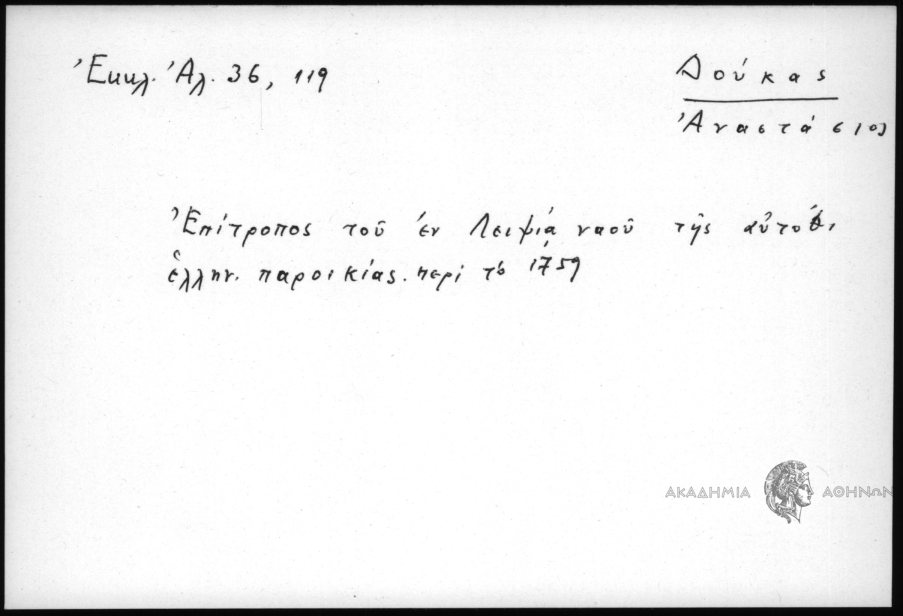 Ἐκκλ. Ἀλ. 36, 119
Δούκας
Ἀναστάσιος
Ἐπίτροπος τοῦ ἐν Λειψίᾳ ναοῦ τῆς αὐτόθι
ἑλλην. παροικίας. περὶ τὸ 1759
ΑΚΑΔΗΜΙΑ ΑΘΗΝΩΝ